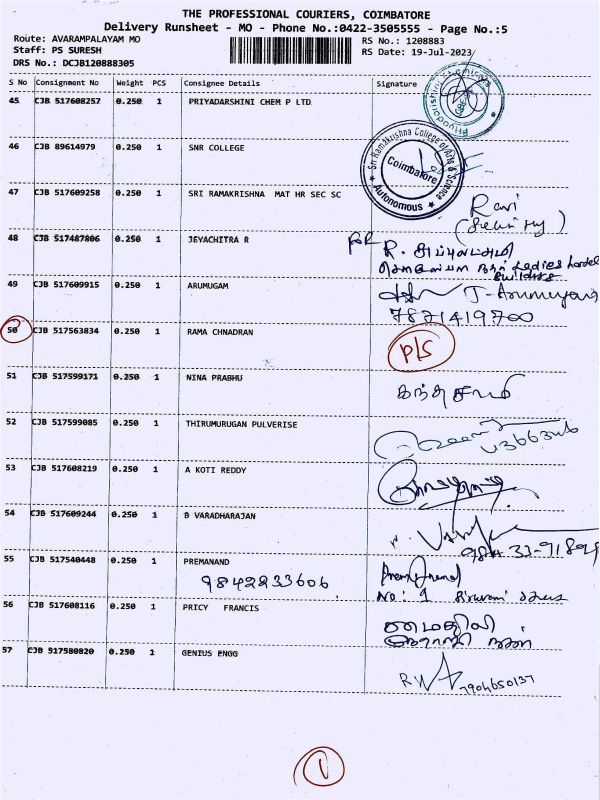 THE PROFESSIONAL COURIERS, COIMBATORE
Delivery Runsheet - MO - Phone No.:0422-3505555 - Page No.:5
Route: AVARAMPALAYAM MO
RS No.: 1208883
Staff: PS SURESH
RS Date: 19-Jul-2023
DRS No.: DCJB120888305
S No Consignment No Weight PCS Consignee Details Signature
45 CJB 517608257 0.250 1 PRIYADARSHINI CHEM P LTD
46 CJB 89614979 0.250 1 SNR COLLEGE
Sri Ramakrishna College of Arts & Science
Coimbatore
Autonomous
47 CJB 517609258 0.250 1 SRI RAMAKRISHNA MAT HR SEC SC
Ravi
(Security)
48 CJB 517487806 0.250 1 JEYACHITRA R
for R.
Ladies hostel
49 CJB 517609915 0.250 1 ARUMUGAM
T. Arumugam
7871419700
50 CJB 517563834 0.250 1 RAMA CHNADRAN
P/S
51 CJB 517599171 0.250 1 NINA PRABHU
கந்தசாமி
52 CJB 517599085 0.250 1 THIRUMURUGAN PULVERISE
53 CJB 517608219 0.250 1 A KOTI REDDY
54 CJB 517609244 0.250 1 B VARADHARAJAN
55 CJB 517540448 0.250 1 PREMANAND
9842233606
Premanand
No: 1
56 CJB 517608116 0.250 1 PRICY FRANCIS
57 CJB 517580820 0.250 1 GENIUS ENGG
7904650137
1